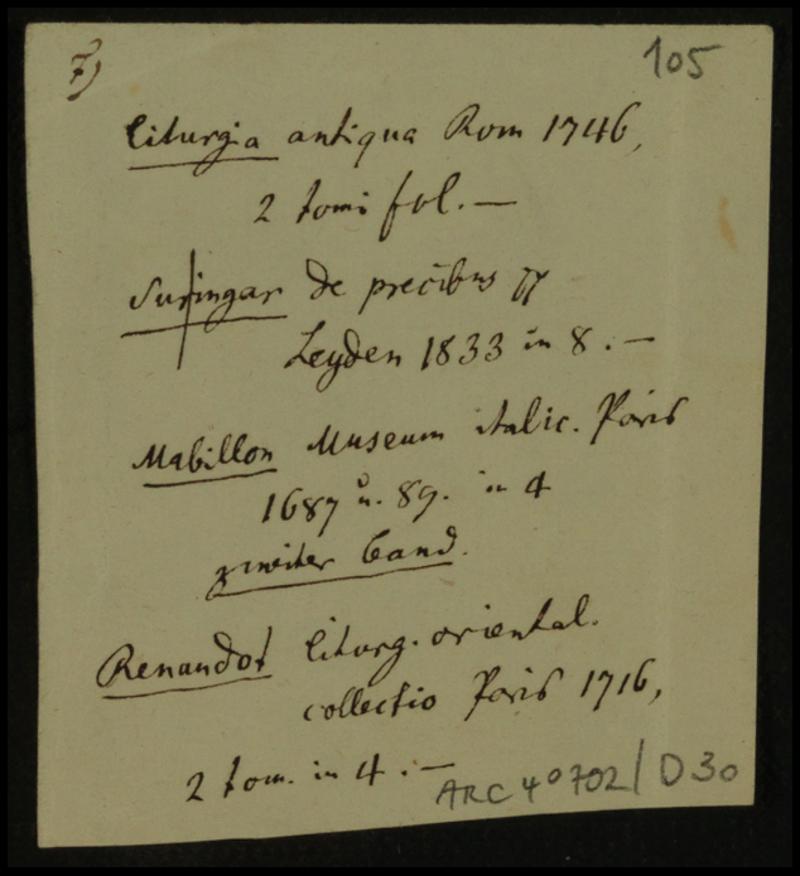 7)
105
Liturgia antiqua Rom 1746,
2 tomi fol. —
Suringar de precibus pp
Leyden 1833 in 8. —
Mabillon Museum italic. Paris
1687 u. 89. in 4
zweiter Band.
Renaudot Liturg. oriental.
collectio Paris 1716,
2 tom. in 4. —
ARC 4° 702 / D30